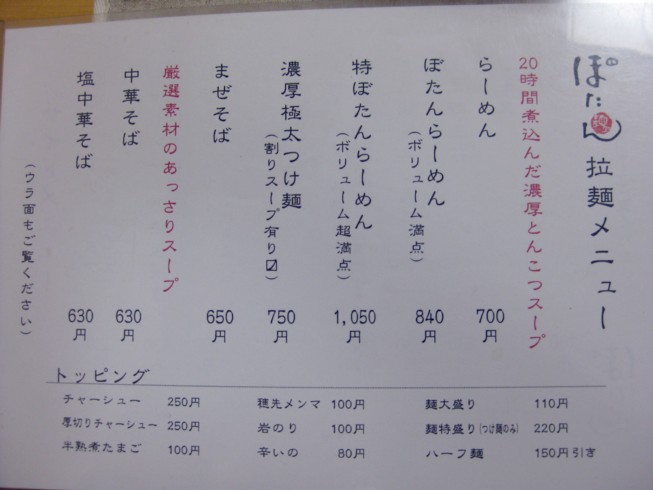 ぼたん 拉麺メニュー
20時間煮込んだ濃厚とんこつスープ
らーめん 700円
ぼたんらーめん(ボリューム満点) 840円
特ぼたんらーめん(ボリューム超満点) 1,050円
濃厚極太つけ麺(割りスープ有り〼) 750円
まぜそば 650円
厳選素材のあっさりスープ
中華そば 630円
塩中華そば 630円
(ウラ面もご覧ください)
トッピング
チャーシュー 250円
厚切りチャーシュー 250円
半熟煮たまご 100円
穂先メンマ 100円
岩のり 100円
辛いの 80円
麺大盛り 110円
麺特盛り(つけ麺のみ) 220円
ハーフ麺 150円引き